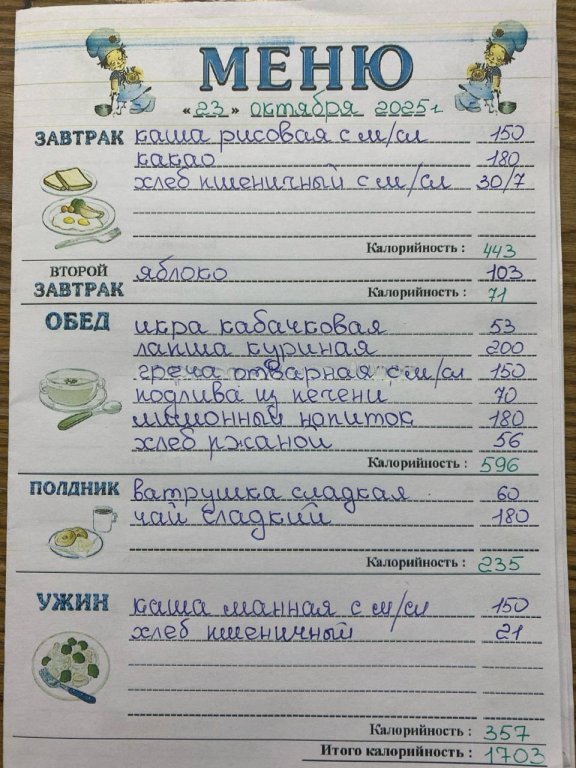 МЕНЮ
«23» октября 2025г
ЗАВТРАК каша рисовая с м/сл 150
какао 180
хлеб пшеничный с м/сл 30/7
Калорийность : 443
ВТОРОЙ ЗАВТРАК яблоко 103
Калорийность : 71
ОБЕД икра кабачковая 53
лапша куриная 200
греча отварная с м/сл 150
подлива из печени 70
лимонный нопиток 180
хлеб ржаной 56
Калорийность : 596
ПОЛДНИК ватрушка сладкая 60
чай сладкий 180
Калорийность : 235
УЖИН каша манная с м/сл 150
хлеб пшеничный 21
Калорийность : 357
Итого калорийность : 1703